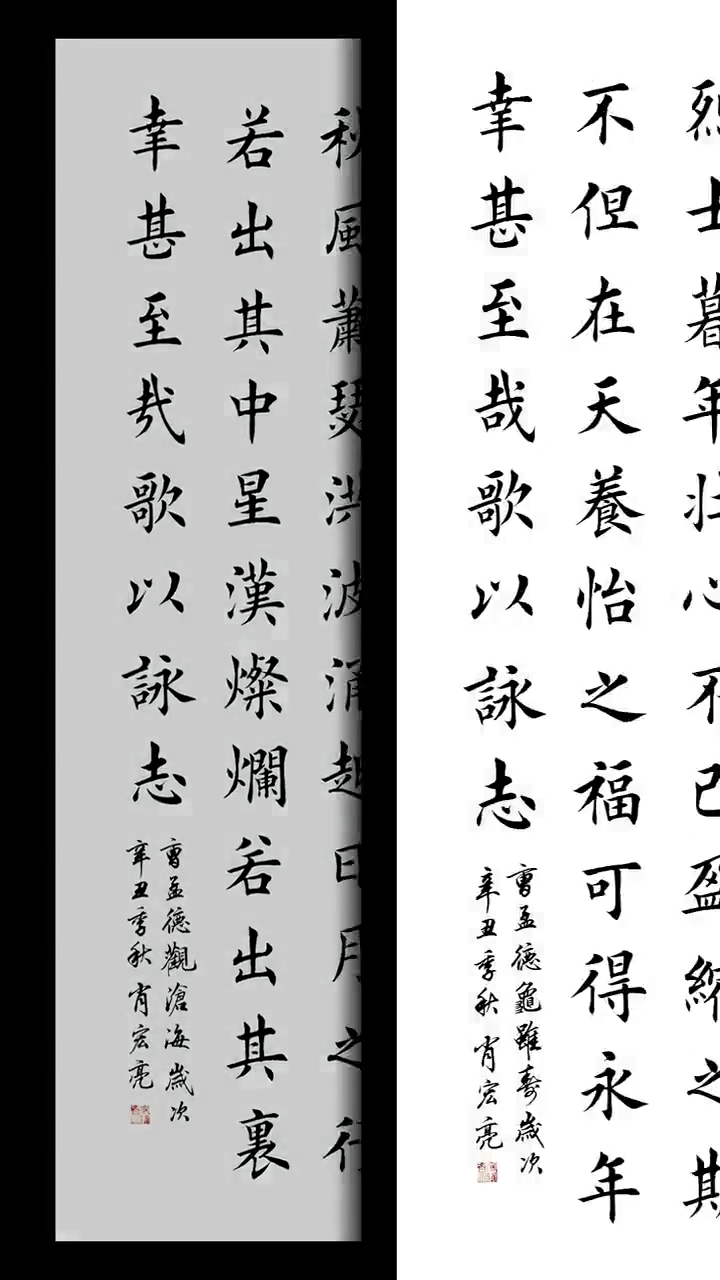 烈士暮年壮心不已盈縮之期
不但在天養怡之福可得永年
幸甚至哉歌以詠志
曹孟德龜雖壽歲次
辛丑季秋肖宏亮
秋風蕭瑟洪波涌起日月之行
若出其中星漢燦爛若出其裏
幸甚至哉歌以詠志
曹孟德觀滄海歲次
辛丑季秋肖宏亮